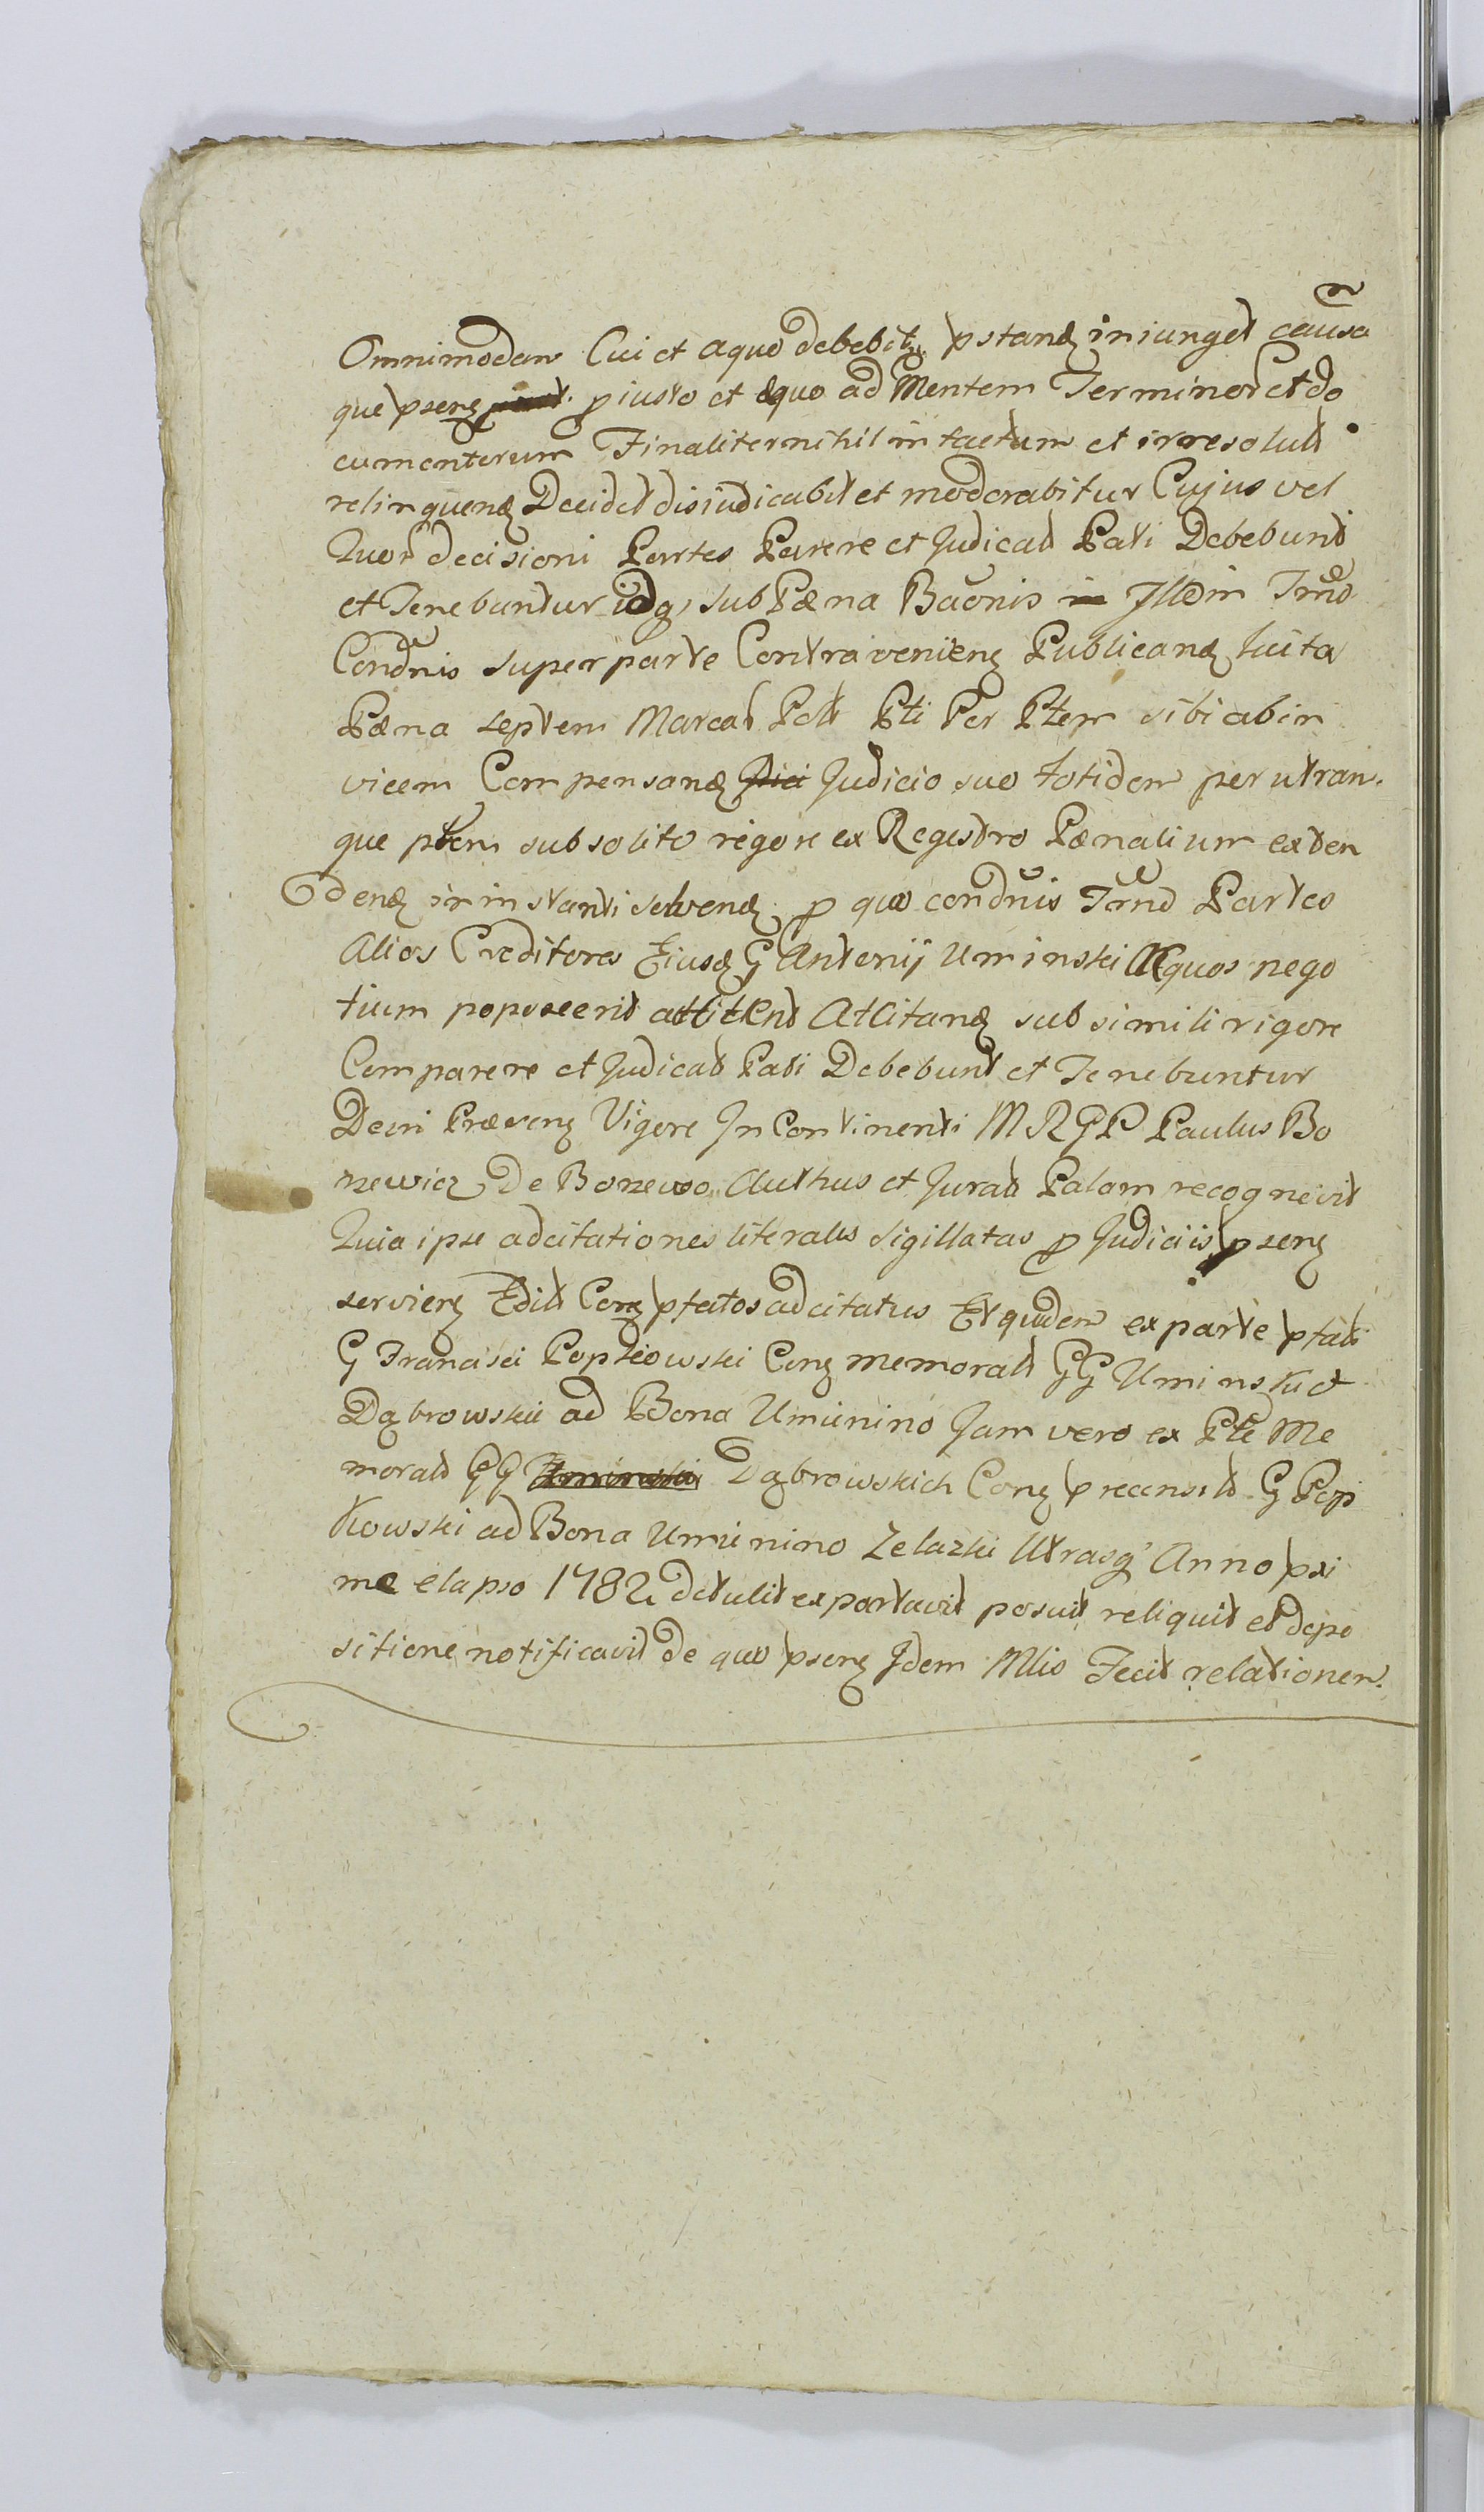 Omnimodam Cui et a quo debebit pstand iniunget causa
que psens p iusto et æquo ad Mentem Terminor et do
cumentorum Finaliter nihil intactum et irresolut
relinquend Decidet disiudicabit et moderabitur Cujus vel
Quor decisioni Partes Parere et Judicat Pati Debebunt
et Tenebuntur idq sub Pæna Baonis in Illõ in Trno
Condnis super parte Contravenien Publicand lucita
Pæna septem Marcat Poll Pti Per Ptem sibi ab in
vicem Compensand Judicio suo totidem per utran
que ptem sub solito rigore ex Registro Pænalium exten
dend in instanti solvend p quo condnis Trno Partes
Alios Creditores Eiusd G Antonij Uminski quos nego
tium poposcerit attitent Atcitand sub simili rigore
Comparere et Judicat Pati Debebunt et Tenebuntur
Dein Præsens Vigore In Continenti M R G P Paulus Bo
newicz De Bonewo Authus et Jurat Palam recognovit
Quia ipse adcitationes literales sigillatas p Judiciis psens
servien Edit Con ptactos adcitatus Et quidem ex parte ptati
G Francisci Popkowski Con memorat GG Uminski et
Dąbrowskie ad Bona Uminino Jam vero ex Pte Me
morat GG Uminski Dąbrowskich Con precensit G Pop
kowski ad Bona Uminino Zelazki Utrasq Anno pxi
me elapso 1782 detulit exportavit posuit reliquit et depo
sitione notificavit de quo psens Idem Mlis Fecit relationem.